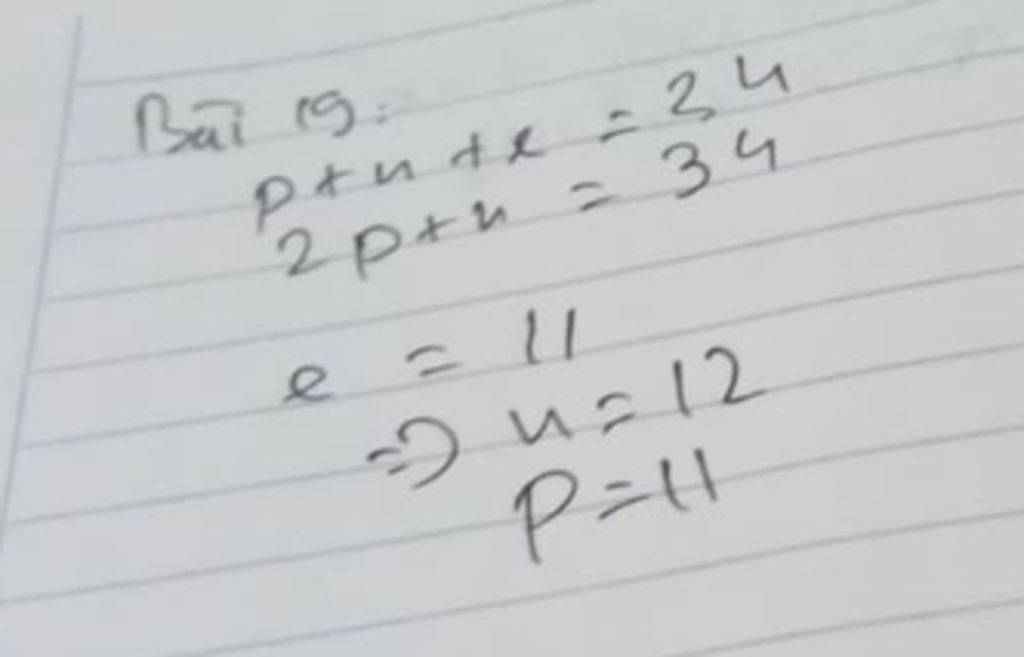 Bài 19:
p+n+e = 34
2p+n = 34
e = 11
=> n = 12
p = 11